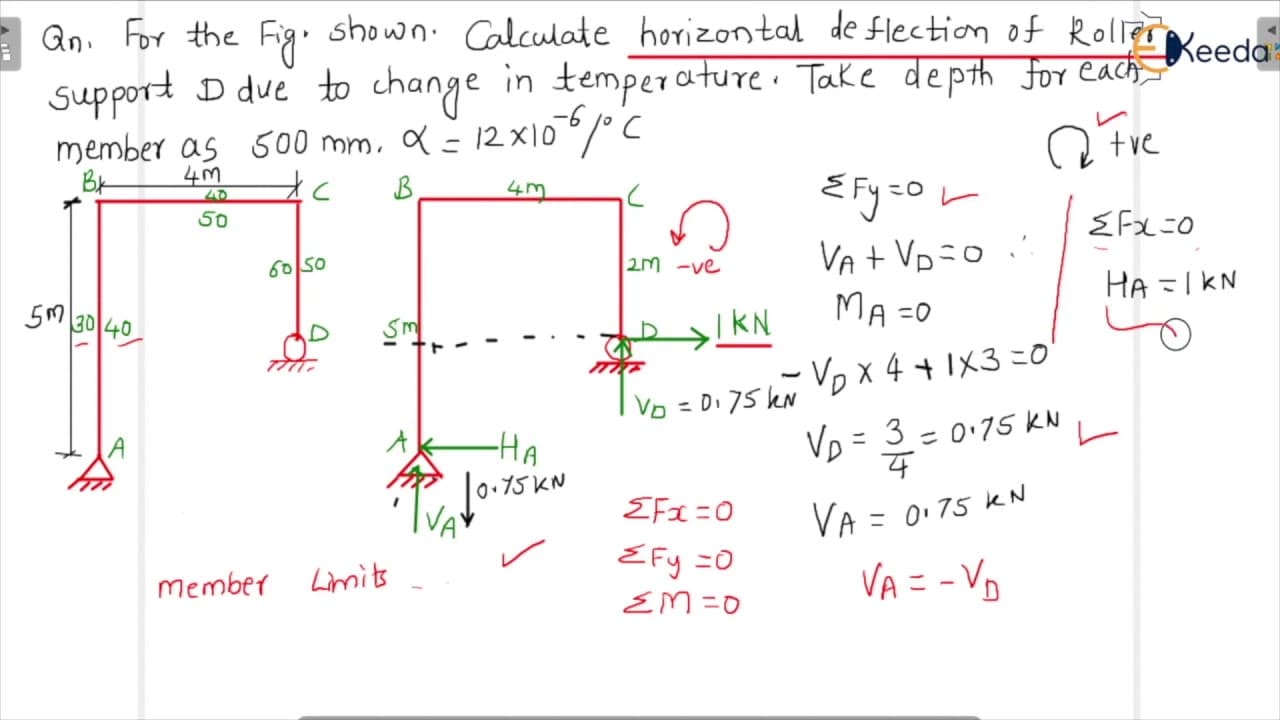 Qn. For the Fig. shown. Calculate horizontal deflection of Roller
support D due to change in temperature. Take depth for each
member as 500 mm. α = 12×10⁻⁶/°C
Keeda
+ve
B 4m C
40
50
60 50
D
5m
30 40
A
B 4m C
2m -ve
5m
D 1 KN
V_D = 0.75 kN
A H_A
0.75 KN
V_A
ΣFy=0
V_A + V_D = 0 ∴
M_A = 0
-V_D × 4 + 1×3 = 0
V_D = 3/4 = 0.75 KN
V_A = 0.75 KN
V_A = - V_D
ΣFx=0
H_A = 1 KN
ΣFx=0
ΣFy=0
ΣM=0
member Limits -